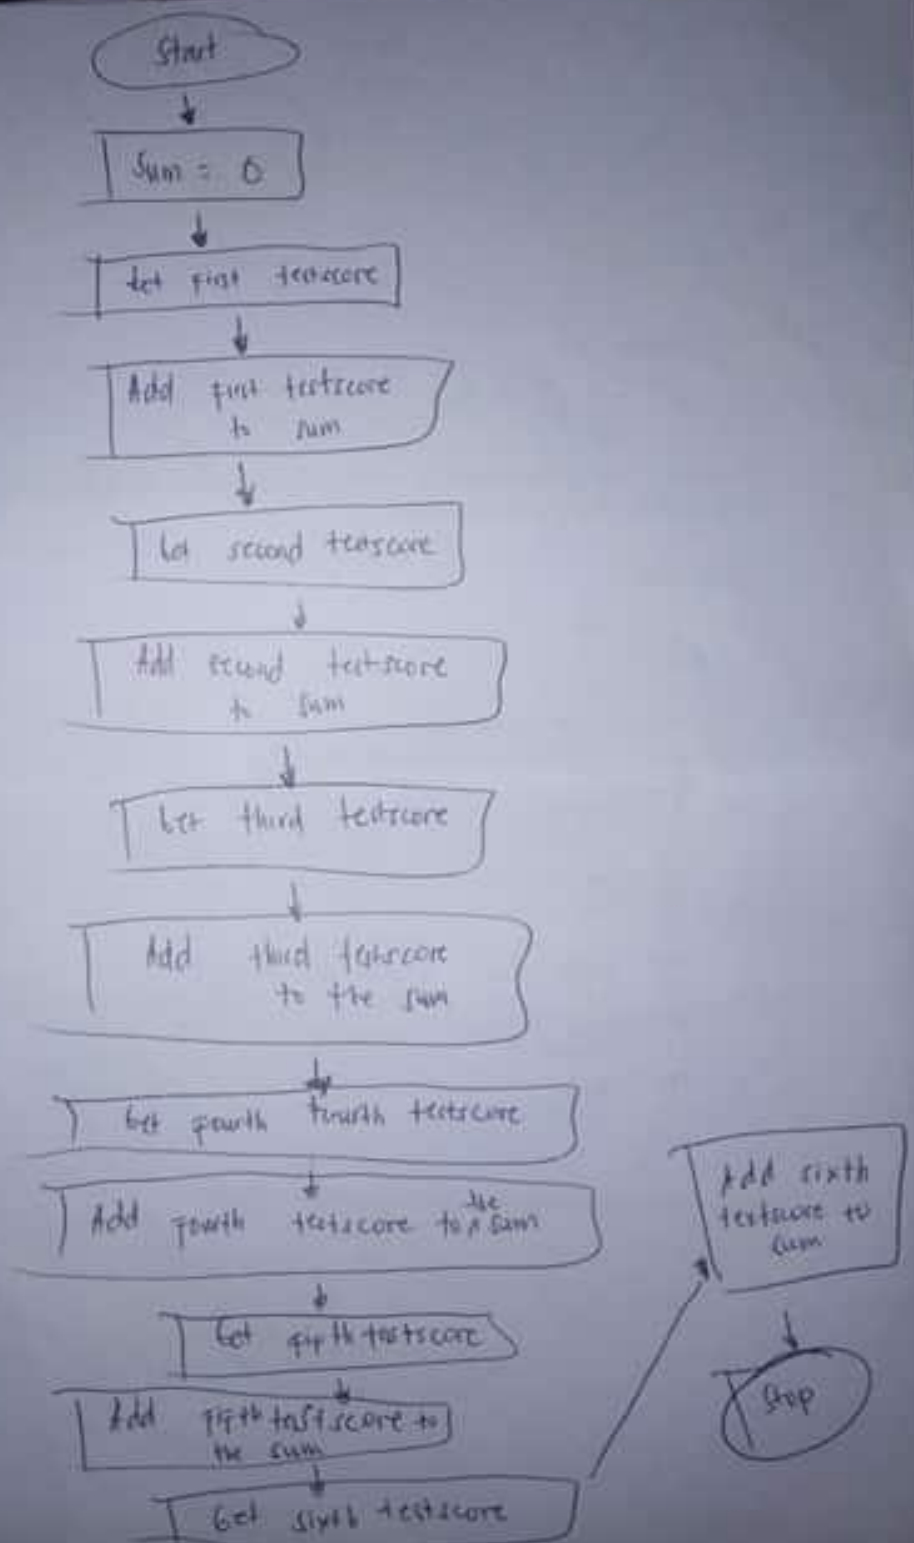 Start
Sum = 0
Get first testscore
Add first testscore
to sum
Get second testscore
Add second testscore
to sum
Get third testscore
Add third testscore
to the sum
Get fourth fourth testscore
Add fourth testscore to the sum
Get fifth testscore
Add fifth testscore to
the sum
Get sixth testscore
Add sixth
testscore to
sum
Stop